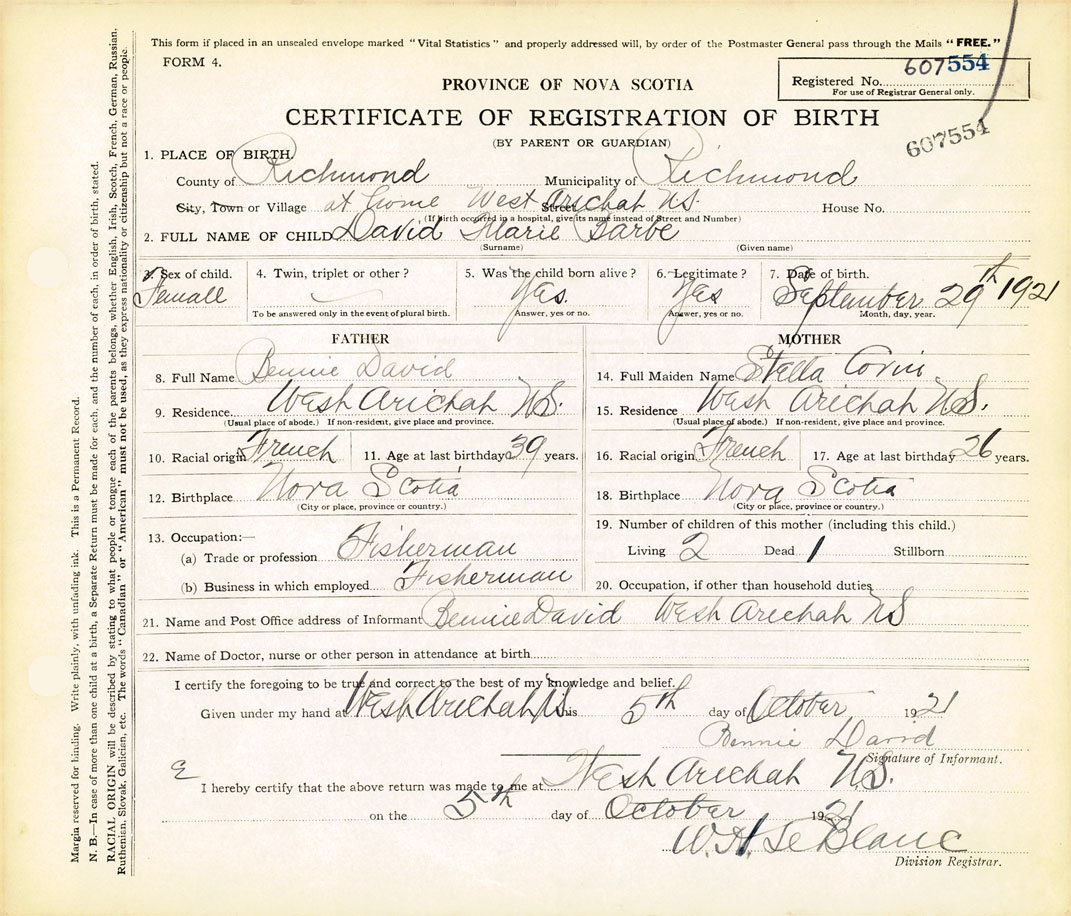 This form if placed in an unsealed envelope marked "Vital Statistics" and properly addressed will, by order of the Postmaster General pass through the Mails "FREE."
FORM 4.
607554
Registered No.
For use of Registrar General only.
PROVINCE OF NOVA SCOTIA
CERTIFICATE OF REGISTRATION OF BIRTH
(BY PARENT OR GUARDIAN)
607554
1. PLACE OF BIRTH
County of Richmond Municipality of Richmond
City, Town or Village at home West Arichat N.S. Street House No.
(If birth occurred in a hospital, give its name instead of Street and Number)
2. FULL NAME OF CHILD David Marie Barbe
(Surname) (Given name)
3. Sex of child. 4. Twin, triplet or other? 5. Was the child born alive? 6. Legitimate? 7. Date of birth.
Femall Yes. Yes September 29th 1921
To be answered only in the event of plural birth. Answer, yes or no. Answer, yes or no. Month, day, year.
FATHER
8. Full Name Bennie David
9. Residence West Arichat N.S.
(Usual place of abode.) If non-resident, give place and province.
10. Racial origin French 11. Age at last birthday 39 years.
12. Birthplace Nova Scotia
(City or place, province or country.)
13. Occupation:—
(a) Trade or profession Fisherman
(b) Business in which employed Fisherman
MOTHER
14. Full Maiden Name Stella
15. Residence West Arichat N.S.
(Usual place of abode.) If non-resident, give place and province.
16. Racial origin French 17. Age at last birthday 26 years.
18. Birthplace Nova Scotia
(City or place, province or country.)
19. Number of children of this mother (including this child.)
Living 2 Dead 1 Stillborn
20. Occupation, if other than household duties
21. Name and Post Office address of Informant Bennie David West Arichat N.S
22. Name of Doctor, nurse or other person in attendance at birth
I certify the foregoing to be true and correct to the best of my knowledge and belief.
Given under my hand at West Arichat N.S this 5th day of October 1921
Bennie David
Signature of Informant.
I hereby certify that the above return was made to me at West Arichat N.S.
on the 5th day of October 1921
W. H. Le Blanc
Division Registrar.
Margin reserved for binding. Write plainly, with unfading ink. This is a Permanent Record.
N. B.—In case of more than one child at a birth, a Separate Return must be made for each, and the number of each, in order of birth, stated.
RACIAL ORIGIN will be described by stating to what people or tongue each of the parents belongs, whether English, Irish, Scotch, French, German, Russian.
Ruthenian, Slovak, Galician, etc. The words "Canadian" or "American" must not be used, as they express nationality or citizenship but not a race or people.